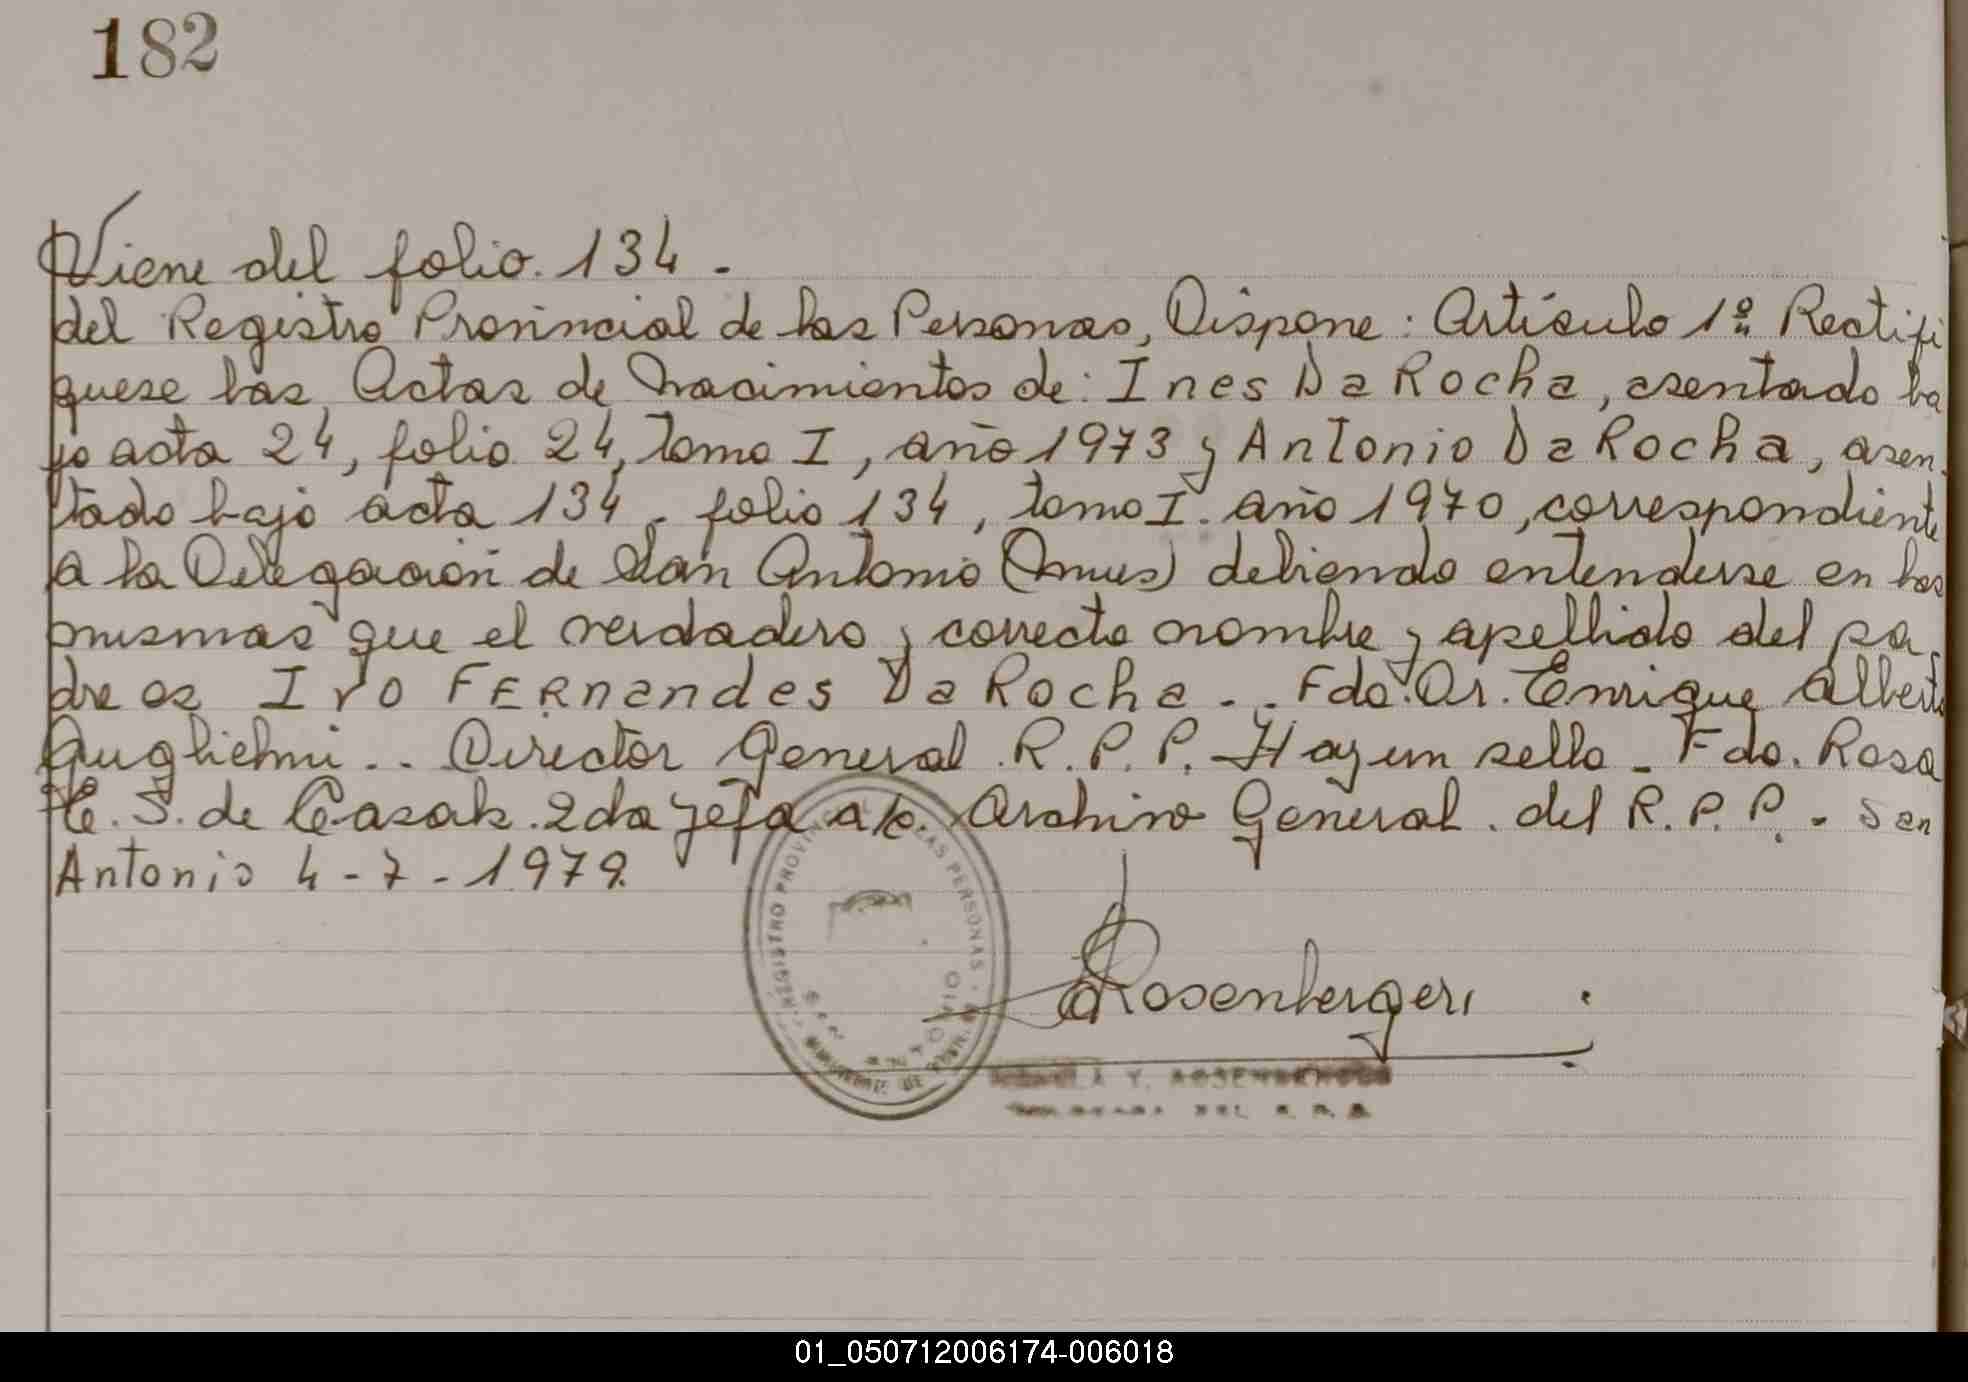 182
Viene del folio. 134 -
del Registro Provincial de las Personas, Dispone: Artículo 1º Rectifi
quese las Actas de Nacimientos de: Ines Da Rocha, asentado ba
jo acta 24, folio 24, tomo I, año 1973 y Antonio Da Rocha, asen
tado bajo acta 134 - folio 134, tomo I. año 1970, correspondiente
a la Delegación de San Antonio (Mnes) debiendo entenderse en las
mismas que el verdadero y correcto nombre y apellido del pa
dre es Ivo Fernandes Da Rocha - . Fdo. Dr. Enrique Alberto
Guglielmi . . Director General R. P. P. Hay un sello - Fdo. Rosa
E. S. de Casals. 2da Jefa a/c Archivo General. del R. P. P. - San
Antonio 4 - 7 - 1979.
REGISTRO PROVINCIAL DE LAS PERSONAS
Rosenberger
Y. ROSENBERGER
DEL R. P. P.
01_050712006174-006018